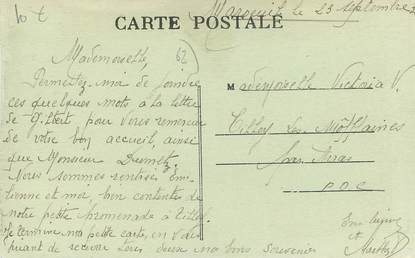 10 t
Maroeuil le 23 septembre
CARTE POSTALE
62
Mademoiselle,
Permettez moi de joindre
ces quelques mots à la lettre
de Gilbert pour vous remercier
de votre bon accueil, ainsi
que Monsieur Dumetz.
Nous sommes rentrés Em-
ilienne et moi, bien contents de
notre petite promenade à Tilloy
Je termine ma petite carte, en vous
priant de recevoir tous deux nos bons souvenirs
Mademoiselle Victoria V.
Tilloy les Mofflaines
par Arras
P.D.C